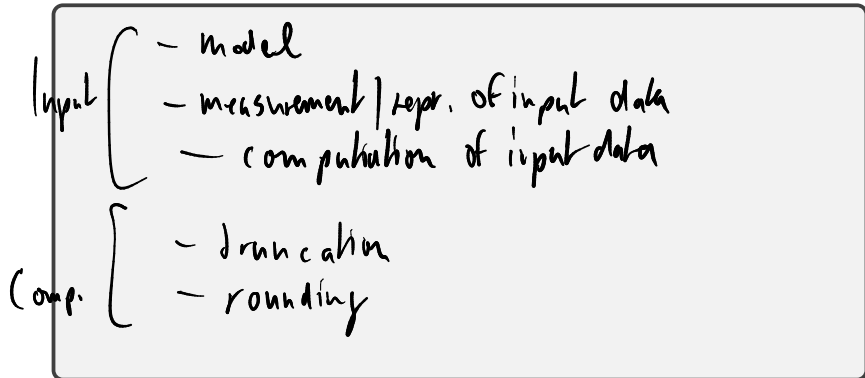 Input
- model
- measurement / repr. of input data
- computation of input data
Comp.
- truncation
- rounding